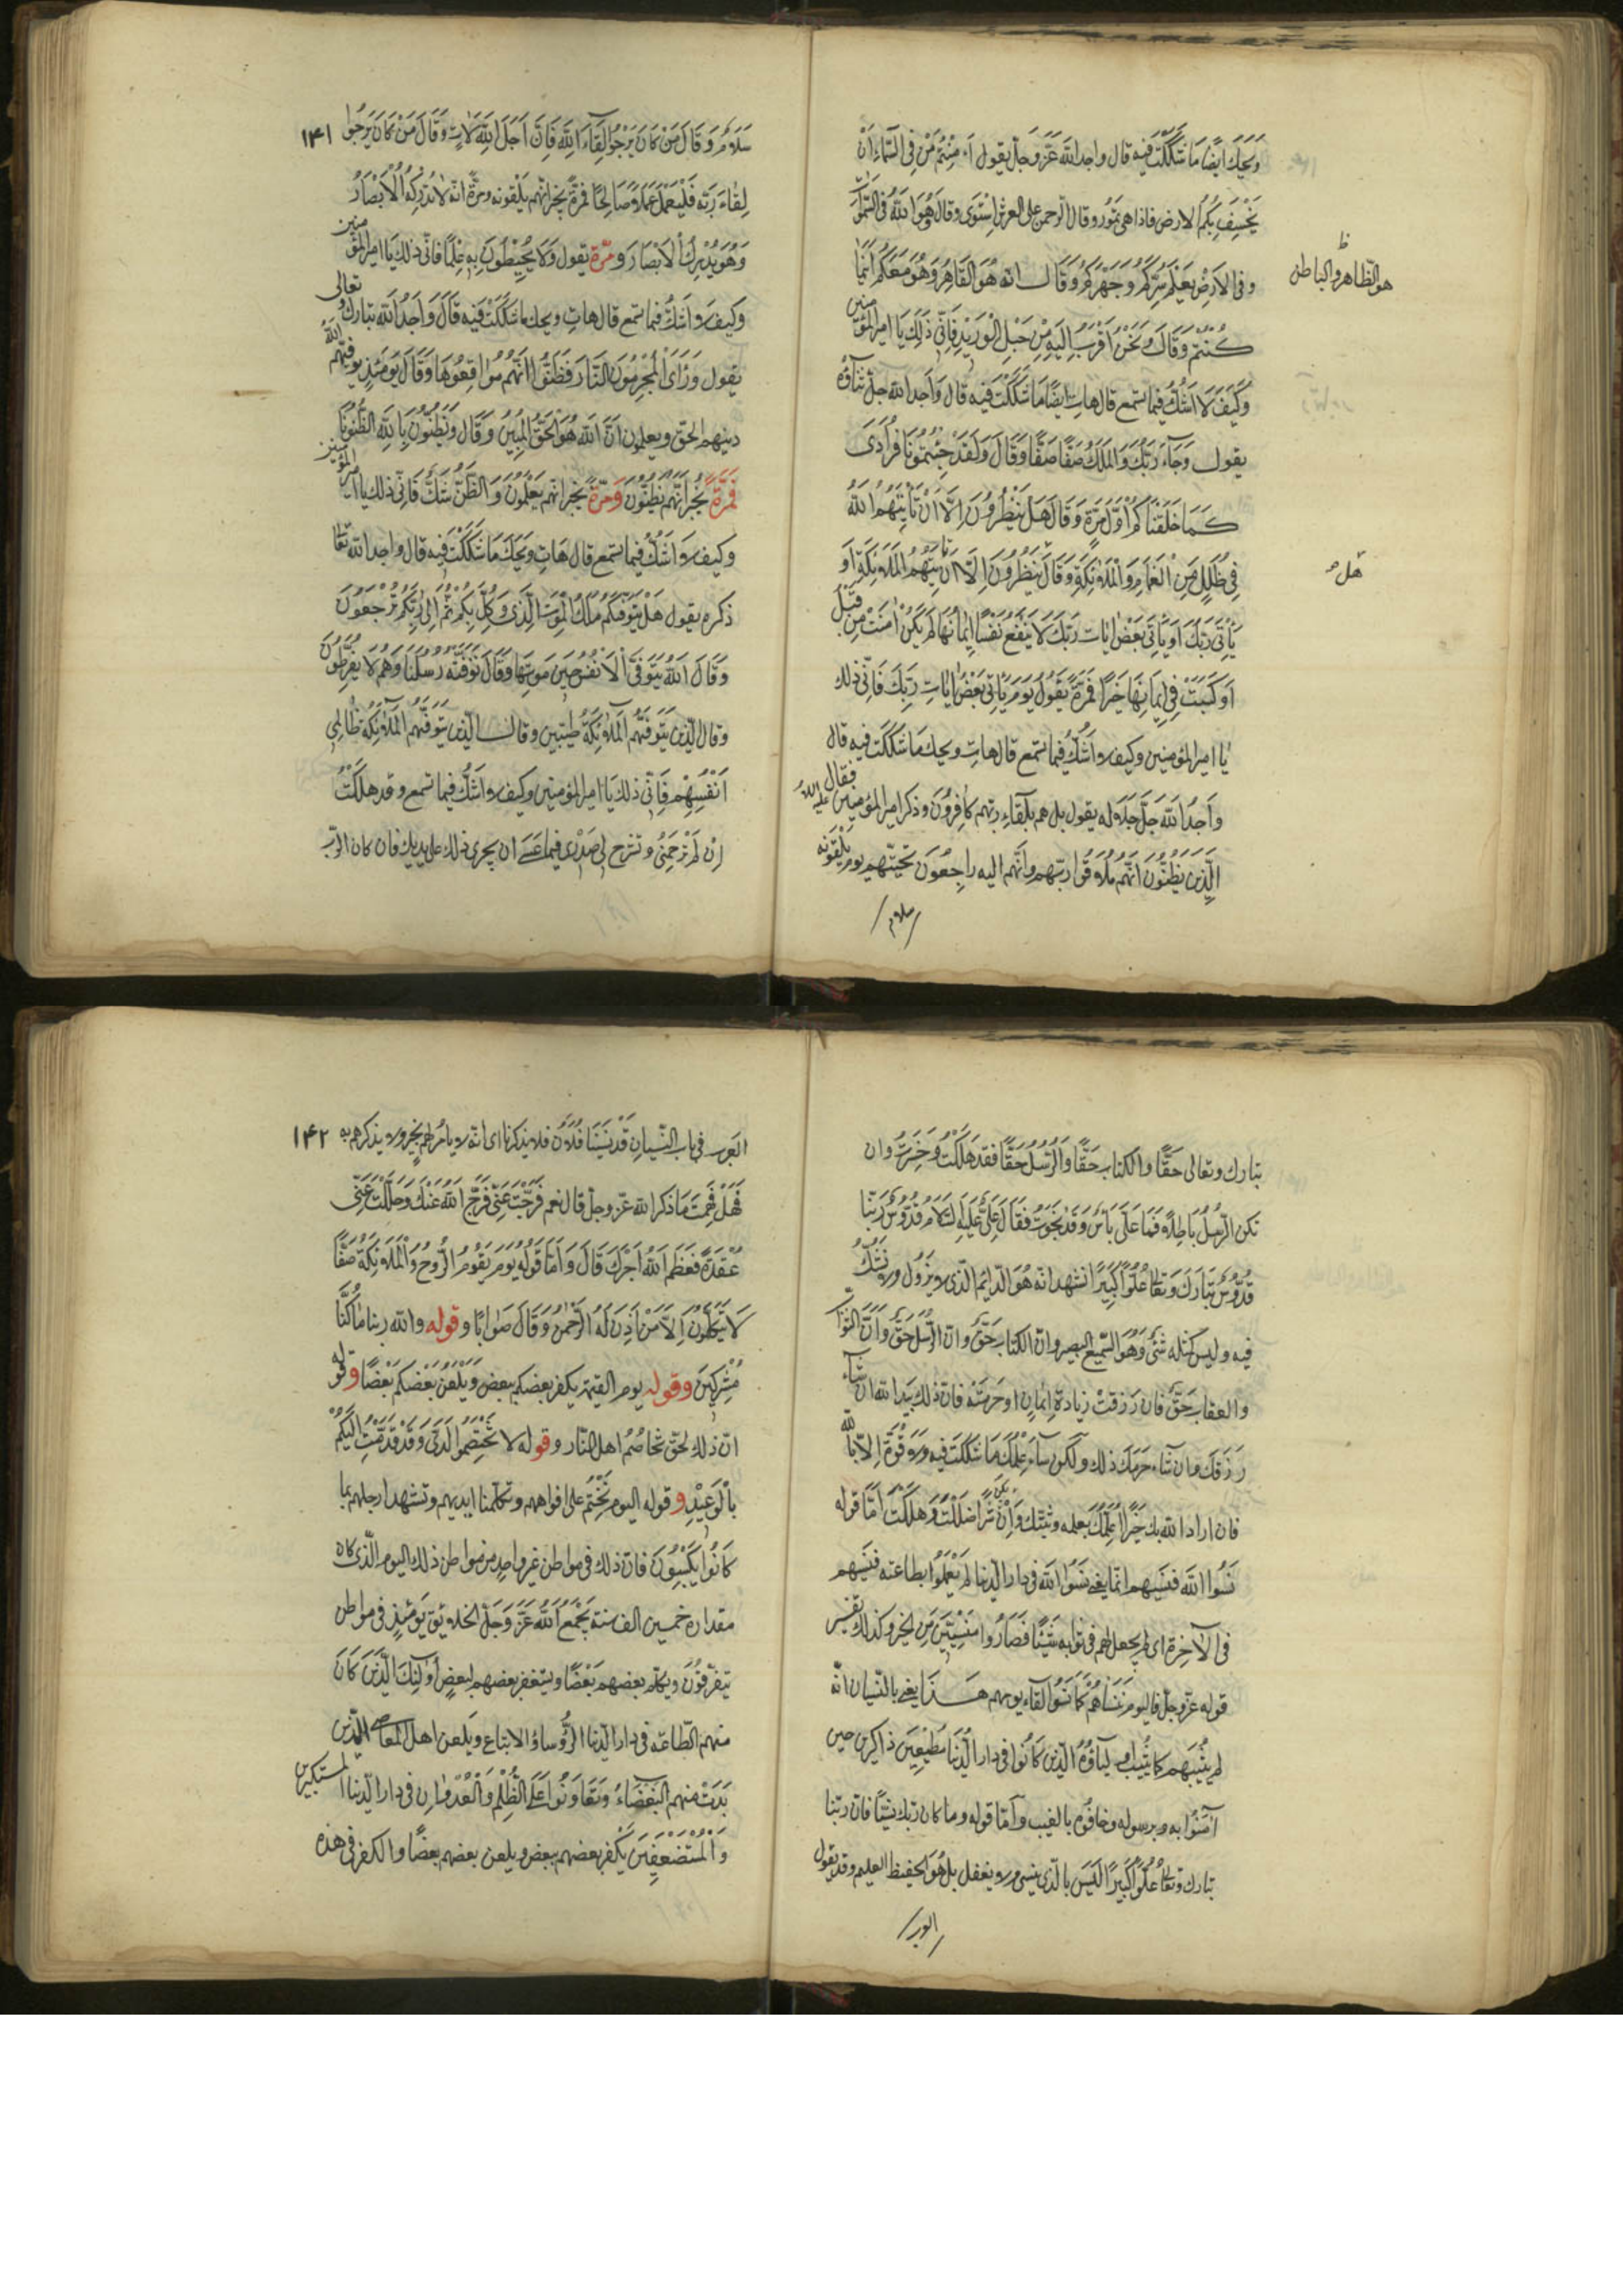 وَيْحَكَ اَيضًا مَا شَكَكْتَ فيه قال واجد الله عَزَّ وَجلّ يقول ءَ اَمِنْتُمْ مَنْ فِى السَّمَاءِ اَنْ
يَخْسِفَ بِكُمُ الارض فاذا هى تَمُور وقال الرّحمن على العرش اسْتَوى وقال هُوَ اللهُ فى السَّمٰوٰات
هو الظّاهر والباطن
وفى الاَرْضِ يَعْلَمُ سِرَّكُمْ وَجَهْرَكُمْ وَقَال انّه هُوَ القَاهِرُ وَهُوَ مَعَكُمْ اَيْنَمَا
كُنْتُمْ وَقَالَ وَنَحْنُ اَقْرَبُ اِلَيْهِ مِنْ حَبْلِ الْوَرِيْدِ فَاَنّٰى ذٰلِكَ يَا امير المؤمنين
وَكَيْفَ لَا اَشُكُّ فيما تسمع قال هات ايضًا مَا شَكَكْتَ فيه قال وَاَجد الله جلّ ثناؤه
يقول وَجَآءَ رَبُّكَ وَالمَلَكُ صَفًّا صَفًّا وَقَالَ وَلَقَدْ جِئْتُمُونَا فُرَادٰى
كَمَا خَلَقْنَاكُمْ اَوَّلَ مَرَّةٍ وَقَالَ هَلْ يَنْظُرُوْنَ اِلَّا اَنْ يَأْتِيَهُمُ اللهُ
هل
فِى ظُلَلٍ مِنَ الْغَمَامِ وَالْمَلَائِكَةِ وَقَالَ يَنْظُرُوْنَ اِلَّا اَنْ تَأْتِيَهُمُ الْمَلَائِكَةُ اَوْ
يَأْتِىَ رَبُّكَ اَوْ يَأْتِىَ بَعْضُ ايَات رَبِّكَ لَا يَنْفَعُ نَفْسًا اِيْمَانُهَا لَمْ تَكُنْ اٰمَنَتْ مِنْ قَبْلُ
اَوْ كَسَبَتْ فِى اِيْمَانِهَا خَيْرًا فَمَرَّةً يَقُولُ يَوْمَ يَأْتِى بَعْضُ اٰيَاتِ رَبِّكَ فَاَنّٰى ذلك
يَا امير المؤمنين وكيف لا اَشُكُّ فيما تسمع قال هات ويحك مَا شَكَكْتَ فيه قال
وَاَجِدُ اللهَ جَلَّ جَلَاله يقول بل هم بلقاء ربّهم كَافِرُوْنَ وذكر امير المؤمنين عليه السلام فقال
الَّذِيْنَ يَظُنُّوْنَ اَنَّهُمْ مُلَاقُوا ربّهم وانّهم اليه رَاجِعُوْنَ تحيّتهم يوم يَلْقَوْنَه
سلام
سَلَامٌ وَقَالَ مَنْ كَانَ يَرْجُوْا لِقَآءَ اللهِ فَاِنَّ اَجَلَ اللهِ لَاٰتٍ وَقَالَ مَنْ كَانَ يَرْجُوْا ۱۴۱
لِقَاءَ رَبِّه فَلْيَعْمَلْ عَمَلًا صَالِحًا فَمرّةً يخبر انّهم يَلْقَونه ومرّةً انّه لَا تُدْرِكُهُ الْاَبْصَارُ
وَهُوَ يُدْرِكُ الْاَبْصَارَ وَمَرّة يقول وَلَا يُحِيْطُوْنَ بِهِ عِلْمًا فَانّٰى ذلك يَا امير المؤمنين
وَكيف لا اَشُكُّ فيما تسمع قال هات ويحك ما شككتَ فيه قَالَ وَاَجِدُ الله تبارك وتعالى
يقول وَرَاَى الْمُجْرِمُوْنَ النَّارَ فَظَنُّوْا اَنَّهُمْ مُوَاقِعُوْهَا وَقَالَ يَوْمَئِذٍ يُوَفِّيْهِمُ الله
دينهم الحقّ ويعلمون اَنَّ اللهَ هُوَ الْحَقُّ الْمُبِيْنُ وَقَال وَتَظُنُّوْنَ بِاللهِ الظُّنُوْنَا
فَمَرَّةً يُخْبر اَنَّهُمْ يَظُنُّوْنَ وَمَرّةً يخبر انّهم يَعْلَمُوْنَ وَالظَّنُّ شَكٌّ فَانّٰى ذلك يا امير المؤمنين
وكيف لا اَشُكُّ فيما تسمع قال هَاتِ وَيْحَكَ مَا شَكَكْتَ فيه قال واجد الله تعالى
ذكره يقول هَلْ يَتَوَفّٰكُمْ مَلَكُ الْمَوْتِ الَّذِى وُكِّلَ بِكُمْ ثُمَّ اِلٰى رَبِّكُمْ تُرْجَعُوْنَ
وَقَالَ اللهُ يَتَوَفَّى الْاَنْفُسَ حِيْنَ مَوْتِهَا وَقَالَ تَوَفَّتْهُ رُسُلُنَا وَهُمْ لَا يُفَرِّطُوْنَ
وقال الّذين تَتَوَفّٰهُمُ الْمَلَائِكَةُ طَيّبين وقال الّذين تَتَوَفّٰهُمُ الْمَلَائِكَةُ ظَالِمِى
اَنْفُسِهِمْ فَاَنّٰى ذلك يَا امير المؤمنين وكيف لا اَشُكُّ فيما تسمع وقد هلَكْتُ
اِنْ لَمْ تَرْحَمْنِى وتشرح لى صَدْرى فيما عَسَى ان يجرى ذلك على يديك فان كان الرّبّ
تبارك وتعالى حَقًّا والكتاب حَقًّا وَالرُّسُلُ حَقًّا فقد هَلَكْتُ وَخَسِرْتُ وان
تكن الرُّسُلُ بَاطِلًا فَمَا عَلَىَّ بَأْسٌ وَقَدْ نَجَوْتُ فَقَالَ عَلِىٌّ عَلَيْهِ السَّلَام قُدُّوْسٌ رَبُّنَا
قُدُّوْسٌ تَبَارَكَ وَتَعَالٰى عُلُوًّا كَبِيْرًا نشهد انّه هُوَ الدّائم الّذى لا يزول ولا نَشُكُّ
فيه وليس كمثله شئٌ وَهُوَ السَّمِيْعُ البصير وانّ الكتابَ حَقٌّ وانّ الرُّسُلَ حَقٌّ وَاَنَّ الثَّوَابَ
والعقاب حَقٌّ فان رُزِقْتَ زيادة اِيْمَانٍ او حُرِمْتَهُ فانّ ذٰلك بيد الله ان شَاء
رَزَقَكَ وان شَآء حَرَمَكَ ذلك ولكن سَاُعْلِمُكَ مَا شَكَكْتَ فيه ولا قُوَّةَ اِلَّا بالله
فان اراد الله بك خَيْرًا اَعْلَمَكَ بعلمه وثبّتك وَاِنْ يكن شَرًّا ضَلَلْتَ وَهَلَكْتَ اَمَّا قوله
نَسُوا الله فنسيهم انّما يعنى نَسُوا اللهَ فى دار الدّنيا لَمْ يَعْمَلُوْا بطاعته فنسيهم
فى الْاٰخِرَة اى لم يجعل لهم فى ثوابه شَيْئًا فَصَارُوا مَنْسِيِّيْنَ مِنَ الخير وكذلك تفسير
قوله عزّ وجلّ فاليوم نَنْسَاهُمْ كَمَا نَسُوا لقاء يومهم هَذَا يعنى بالنّسيان انّه
لم يُثِبْهم كما يُثِيْبُ اَوْلِيَاءَهُ الّذين كَانُوا فى دار الدُّنْيَا مُطِيْعِيْنَ ذَاكِرِيْنَ حين
اٰمَنُوْا به وبرسوله وخافُوْه بالغيب وَاَمَّا قوله وما كان رَبُّكَ نَسِيًّا فَانّ ربّنا
تبارك وتعالٰى عُلُوًّا كَبِيْرًا لَيْسَ بالّذى ينسى ولا يغفل بل هُوَ الحفيظ العليم وقد يقول
العرب
العَرب فى باب النّسيان قَدْ نَسِيَنَا فُلَانٌ فلا يذكرنا اى انّه لا يأمُر لهم بخيرٍ ولا يذكرهم به ۱۴۲
فَهَلْ فَهِمْتَ مَا ذَكَر الله عزّ وجلّ قال نعم فَرَّجْتَ عَنِّى فَرَّجَ اللهُ عَنْكَ وَحَلَلْتَ عَنِّى
عُقْدَةً فَعَظَّمَ اللهُ اَجْرَكَ قَالَ وَاَمَّا قَوْلُهُ يَوْمَ يَقُوْمُ الرُّوْحُ وَالْمَلَائِكَةُ صَفًّا
لَا يَتَكَلَّمُوْنَ اِلَّا مَنْ اَذِنَ لَهُ الرَّحْمٰنُ وَقَالَ صَوَابًا وقوله والله ربنا مَا كُنَّا
مُشْرِكِيْنَ وقوله يوم القيٰمة يكفر بعضكم ببعض وَيَلْعَنُ بَعْضُكُمْ بَعْضًا وقوله
انّ ذلك لحقّ تخَاصُمُ اهل النّار وقوله لا تَخْتَصِمُوا لَدَىَّ وَقَدْ قَدَّمْتُ اِلَيْكُمْ
بِالْوَعِيْدِ وقوله اليوم نَخْتِمُ على افواههم وتكلّمنا ايديهم وتشهد ارجلهم بما
كَانُوا يَكْسِبُوْنَ فانّ ذلك فى مواطن غير واحدٍ من مواطن ذلك اليوم الّذى كان
مقداره خمسين الف سنة يَجْمَعُ اللهُ عَزَّ وَجَلَّ الخلائق يَوْمَئِذٍ فى مواطن
يَتَفَرَّقُوْنَ ويكلّم بعضهم بَعْضًا ويستغفر بعضهم لبعضٍ اُولٰئِكَ الَّذِيْنَ كَانَ
منهم الطّاعة فى دار الدّنيا الرُّؤساءُ الاتباع ويَلعن اهل المعاصى الّذين
بَدَتْ منهم الْبَغْضَاءُ وَتَعَاوَنُوْا عَلَى الظُّلْمِ وَالْعُدْوَانِ فى دار الدّنيا المستكبرين
وَالْمُسْتَضْعَفِيْنَ يَكْفُر بعضهم ببعض ويلعن بعضهم بعضًا والكفر فى هٰذه